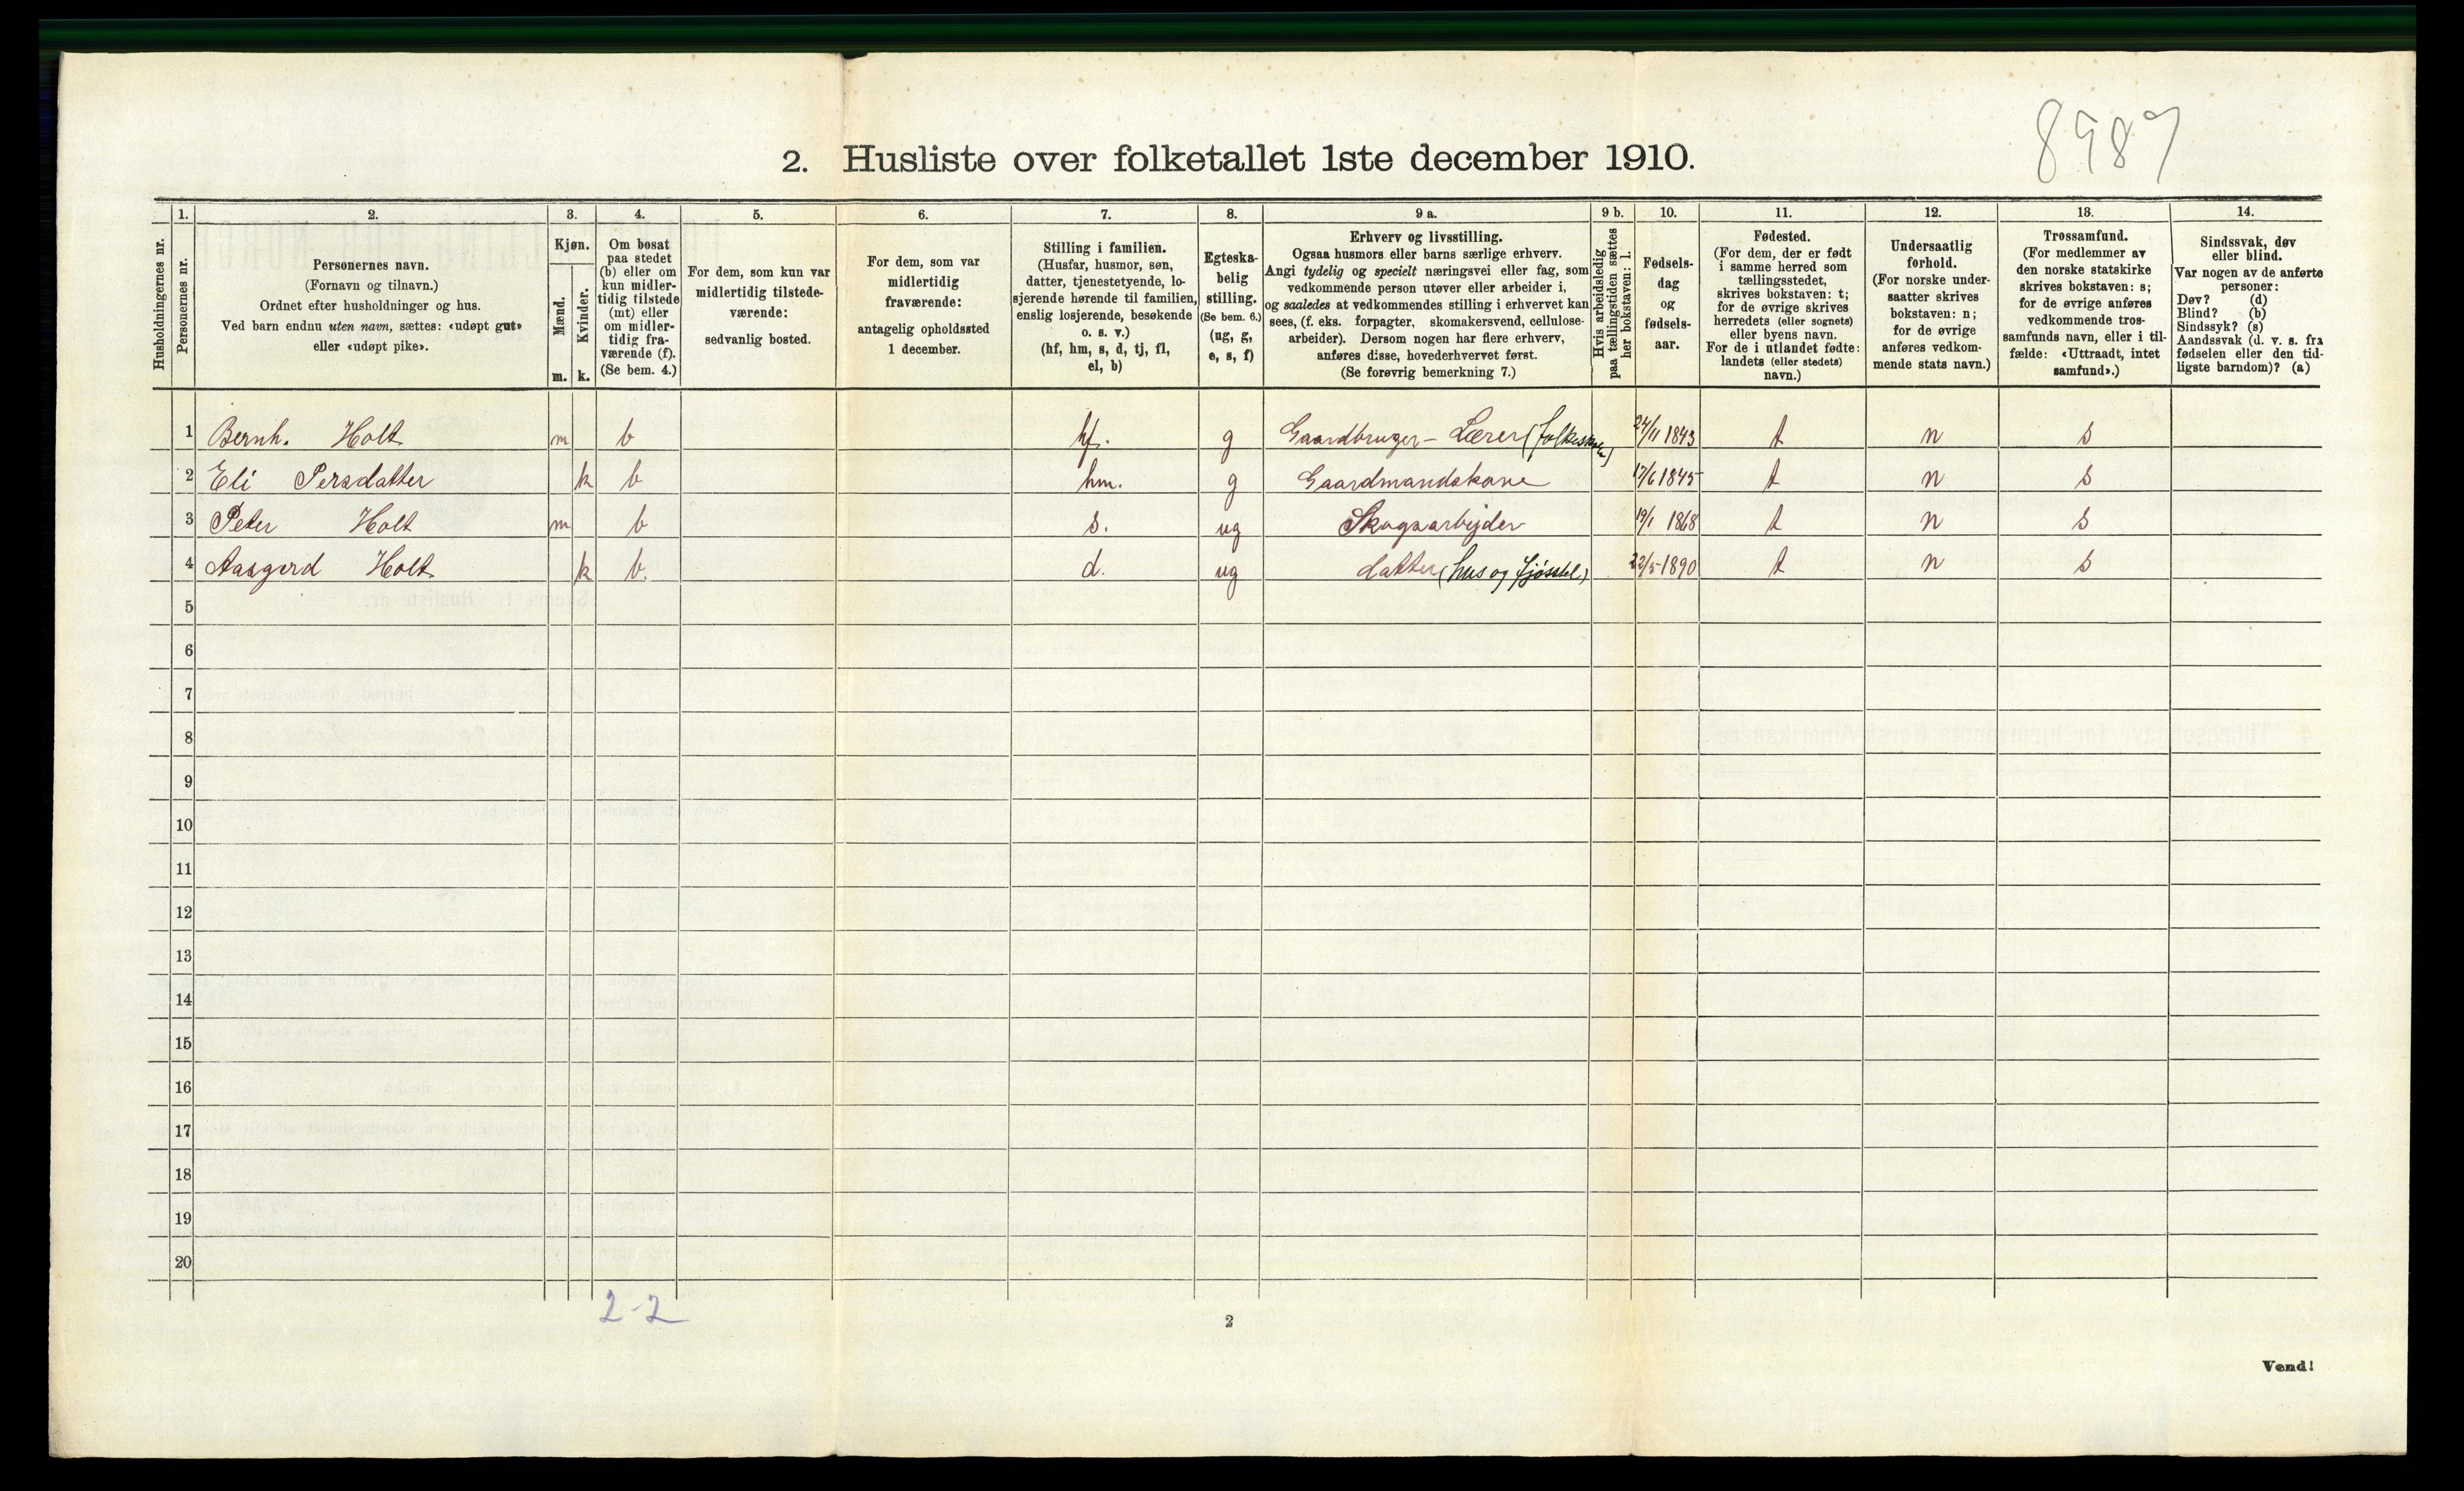 8989
2. Husliste over folketallet 1ste december 1910.
1. 2. 3. 4. 5. 6. 7. 8. 9 a. 9 b. 10. 11. 12. 13. 14.
Husholdningernes nr.
Personernes nr.
Personernes navn.
(Fornavn og tilnavn.)
Ordnet efter husholdninger og hus.
Ved barn endnu uten navn, sættes: «udøpt gut»
eller «udøpt pike».
Kjøn.
Mænd.
Kvinder.
m. k.
Om bosat
paa stedet
(b) eller om
kun midler-
tidig tilstede
(mt) eller
om midler-
tidig fra-
værende (f).
(Se bem. 4.)
For dem, som kun var
midlertidig tilstede-
værende:
sedvanlig bosted.
For dem, som var
midlertidig
fraværende:
antagelig opholdssted
1 december.
Stilling i familien.
(Husfar, husmor, søn,
datter, tjenestetyende, lo-
sjerende hørende til familien,
enslig losjerende, besøkende
o. s. v.)
(hf, hm, s, d, tj, fl,
el, b)
Egteska-
belig
stilling.
(Se bem. 6.)
(ug, g,
e, s, f)
Erhverv og livsstilling.
Ogsaa husmors eller barns særlige erhverv.
Angi tydelig og specielt næringsvei eller fag, som
vedkommende person utøver eller arbeider i,
og saaledes at vedkommendes stilling i erhvervet kan
sees, (f. eks. forpagter, skomakersvend, cellulose-
arbeider). Dersom nogen har flere erhverv,
anføres disse, hovederhvervet først.
(Se forøvrig bemerkning 7.)
Hvis arbeidsledig
paa tællingstiden sættes
her bokstaven: l.
Fødsels-
dag
og
fødsels-
aar.
Fødested.
(For dem, der er født
i samme herred som
tællingsstedet,
skrives bokstaven: t;
for de øvrige skrives
herredets (eller sognets)
eller byens navn.
For de i utlandet fødte:
landets (eller stedets)
navn.)
Undersaatlig
forhold.
(For norske under-
saatter skrives
bokstaven: n;
for de øvrige
anføres vedkom-
mende stats navn.)
Trossamfund.
(For medlemmer av
den norske statskirke
skrives bokstaven: s;
for de øvrige anføres
vedkommende tros-
samfunds navn, eller i til-
fælde: «Uttraadt, intet
samfund».)
Sindssvak, døv
eller blind.
Var nogen av de anførte
personer:
Døv? (d)
Blind? (b)
Sindssyk? (s)
Aandssvak (d. v. s. fra
fødselen eller den tid-
ligste barndom)? (a)
1 Bernh. Holt m b hf. g Gaardbruger - Lærer (folkeskole) 24/11 1843 t n s
2 Eli Persdatter k b hm. g Gaardmandskone 17/6 1845 t n s
3 Peter Holt m b s. ug Skogsarbejder 19/1 1868 t n s
4 Aasgerd Holt k b. d. ug datter (hus og fjøsstel) 22/5 1890 t n s
5
6
7
8
9
10
11
12
13
14
15
16
17
18
19
20
2-2
2
Vend!